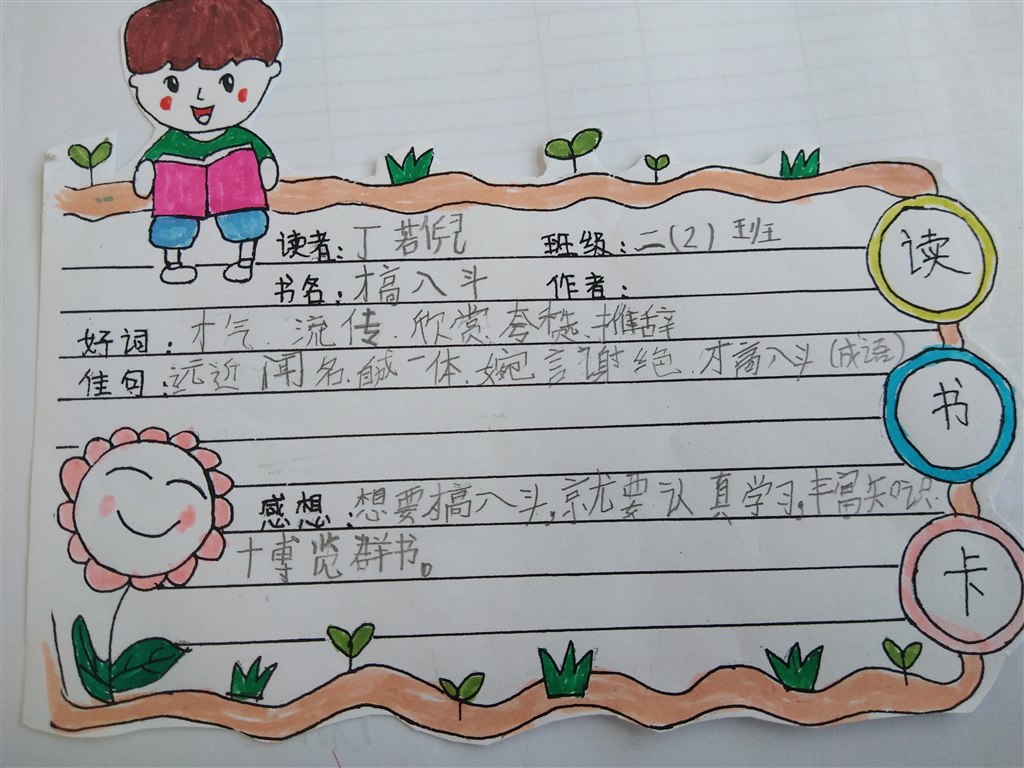 读者:丁若倪 班级:二(2)班
书名:才高八斗 作者:
读
好词:才气、流传、欣赏、夸,推辞
佳句:远近闻名、一体、婉言谢绝、才高八斗(成语)
书
感想:想要才高八斗,就要认真学习,丰富知识
博览群书。
卡